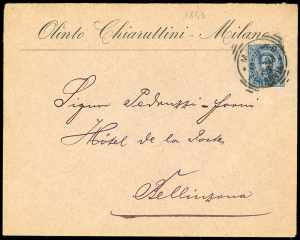 Olinto Chiaruttini - Milano
Signor Pedrussi-Forni
Hôtel de la Poste
Bellinzona